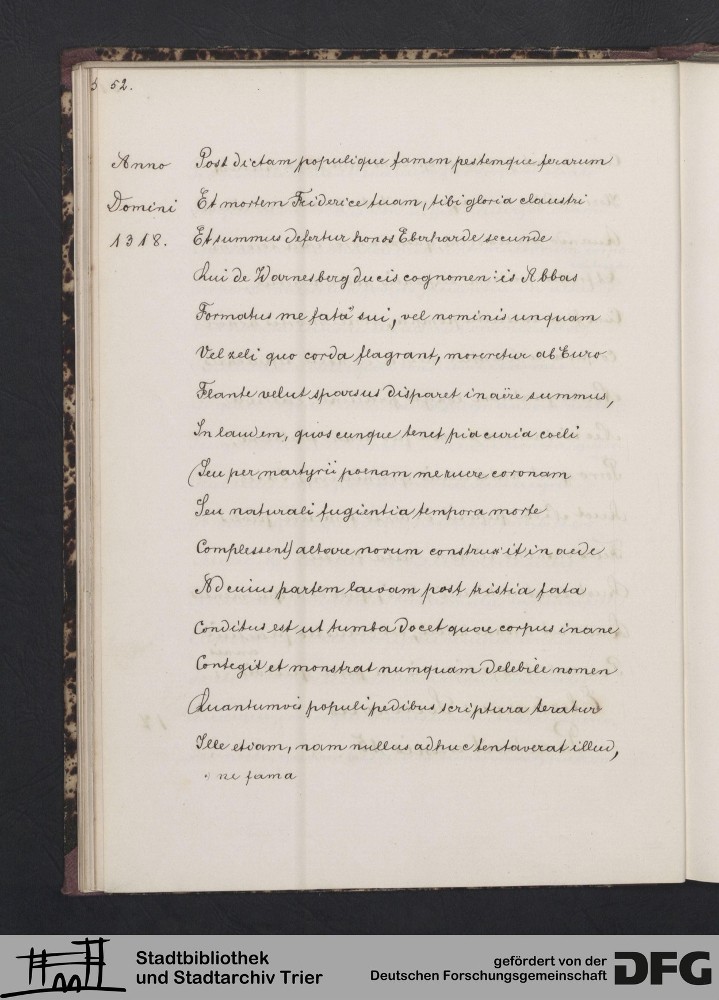 5 52.
Anno
Domini
1318.
Post dictam populique famem pestemque ferarum
Et mortem Friderice tuam, tibi gloria claustri
Et summus defertur honos Eberharde secunde
Qui de Warnesberg ducis cognomen: is Abbas
Formatus me fata" sui, vel nominis unquam
Vel zeli quo corda flagrant, moreretur ab Euro
Flante velut sparsus disparet in aëre summus,
In laudem, quoscunque tenet pia curia coeli
(Seu per martyrii poenam meruere coronam
Seu naturali fugientia tempora morte
Complessent) altare novum construxit in aede
Ad cuius partem laevam post tristia fata
Conditus est ut tumba docet quae corpus inane
Contegit et monstrat numquam delebile nomen
Quantumvis populi pedibus scriptura teratur
Ille etiam, nam nullus adhuc tentaverat illud,
" ne fama
Stadtbibliothek
und Stadtarchiv Trier
gefördert von der
Deutschen Forschungsgemeinschaft
DFG